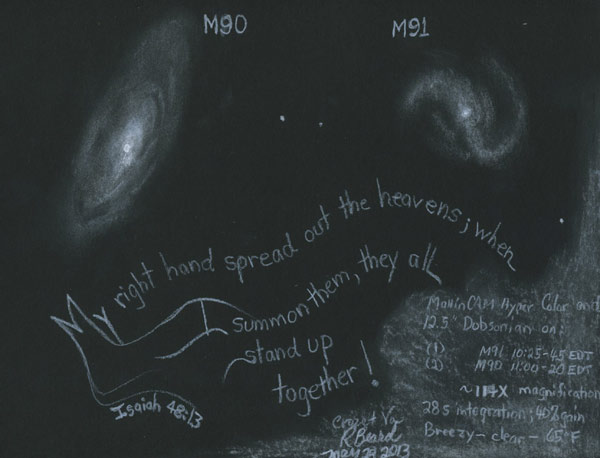 M90
M91
My right hand spread out the heavens; when
I summon them, they all
stand up
together!
Isaiah 48:13
MallinCAM Hyper Color and
12.5" Dobsonian on:
(1) M91 10:25-45 EDT
(2) M90 11:00-20 EDT
~114X magnification
28s integration; 40% gain
Breezy - clear - 65°F
Crozet Va
R Beard
May 2013